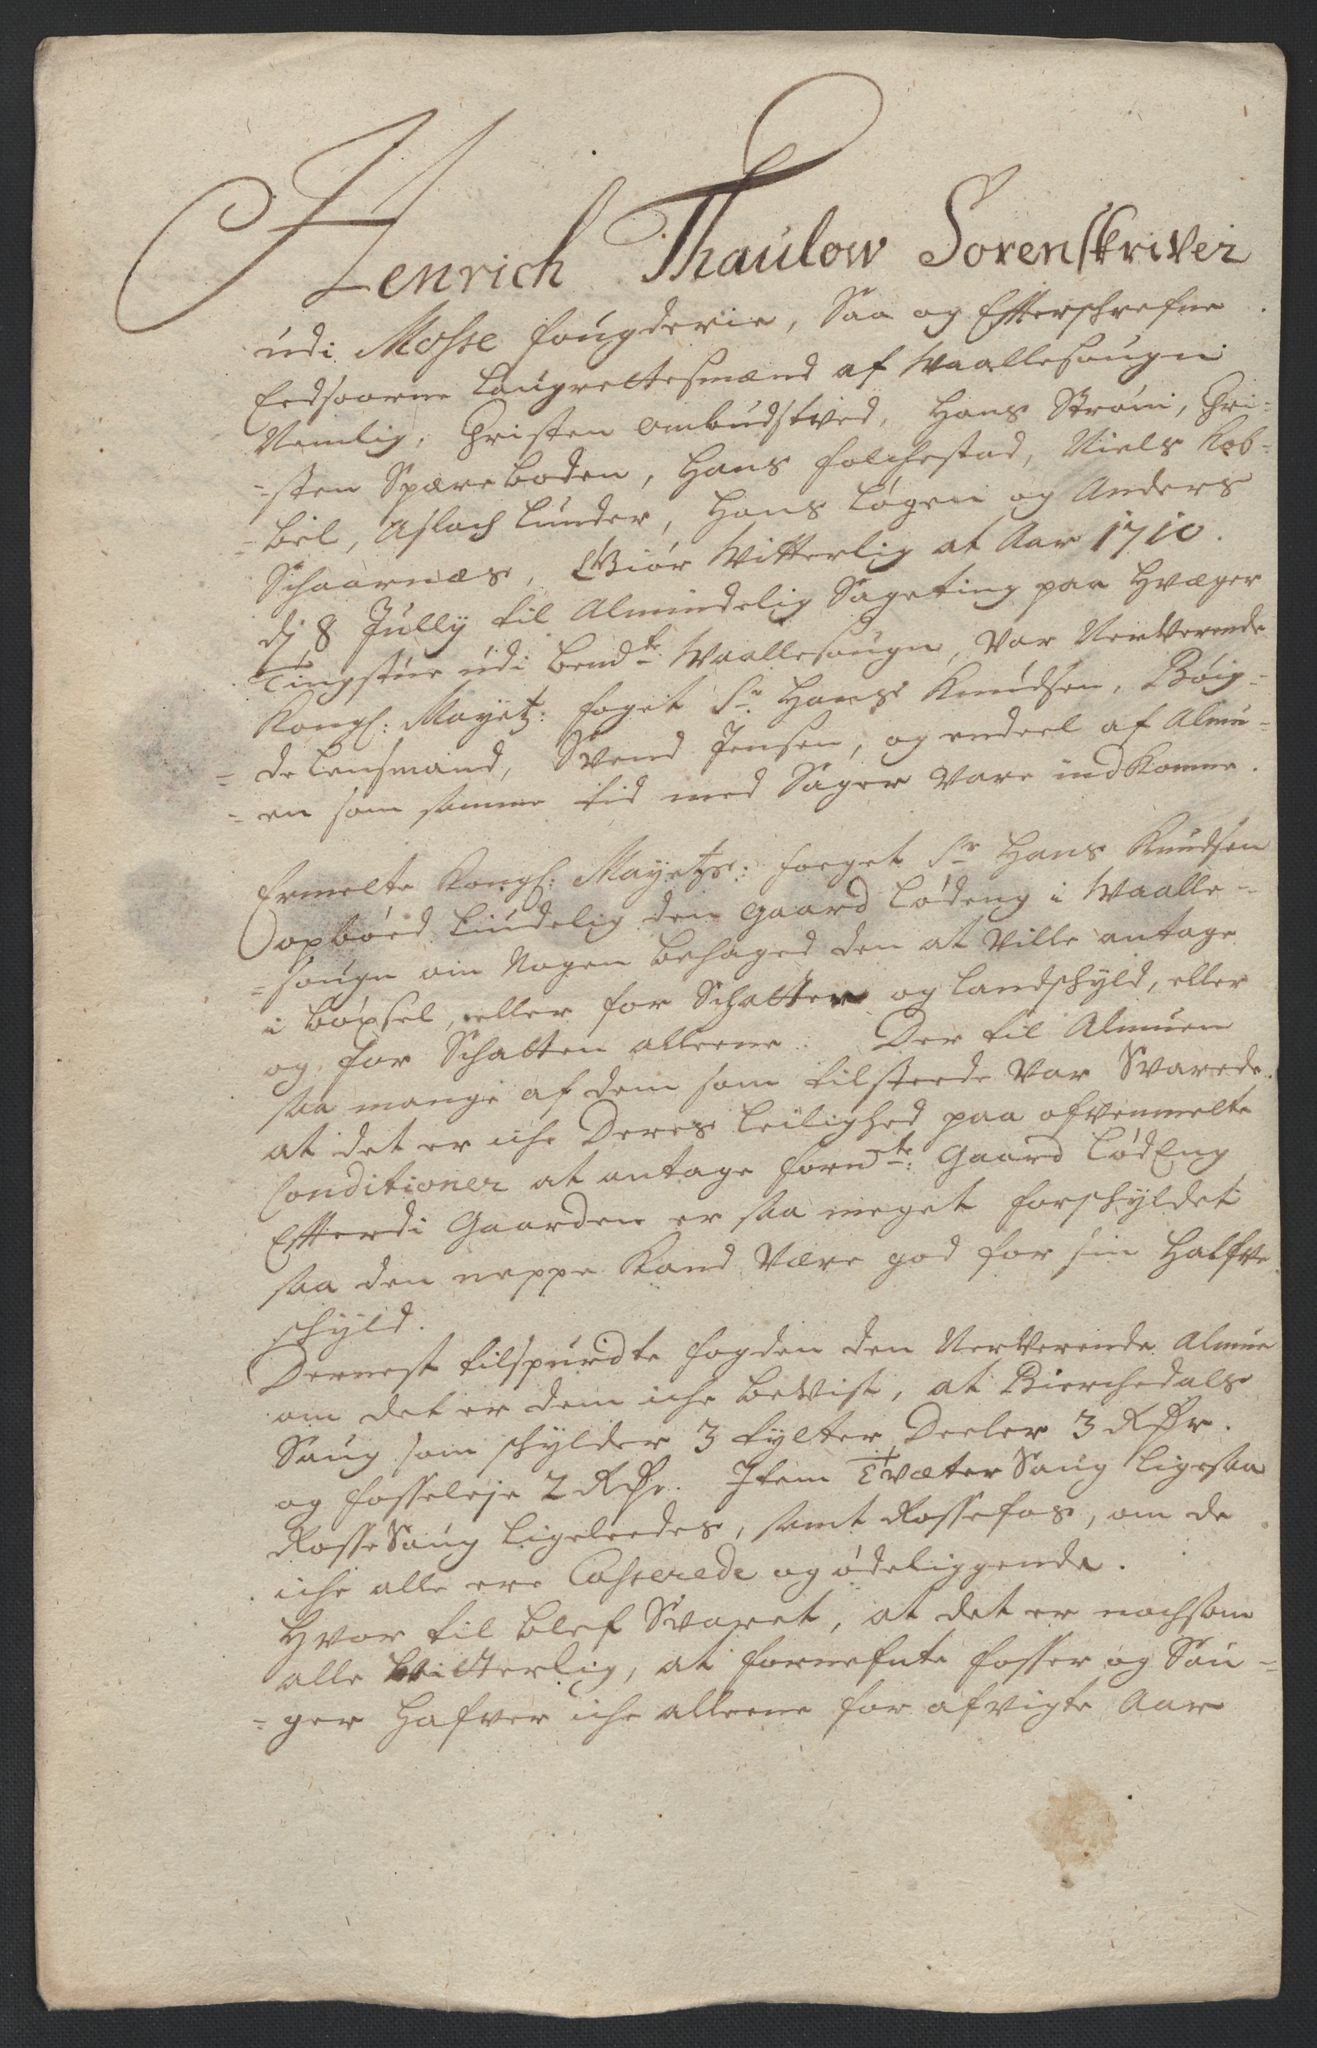 Henrich Thaulow Sorenskriver
udi Mosse fougderie, Saa og Effterschrefne
Eedsoorne Laugrettesmænd af Waallesougn
Nemlig, Christen Ombudstved, Hans Strøm, Chri-
-sten Spæreboden, Hans Folchestad, Niels Kob-
-bel, Aslach Lunder, Hans Løgen og Anders
Schaarnæs, Giør Witterlig at Aar 1710.
dj 8 Jully til Almindelig Sageting paa Hvæger
Tingstue udi bemdte Waallesougn, var Nerverende
Kongl: Mayetz: foget Sr Hans Knudsen, Bøig-
-de lensmand, Svend Jensen, og endeel af Almu-
-en som samme tid med Sager vare indkomne.
Ermelte Kongl: Mayetz: foeget Sr Hans Knudsen
opbøed Liudelig den gaard Lødeng i Waalle-
-sougn om Nogen behaged den at ville antage
i bøxsel, eller for Schatter og landschyld, eller
og for Schatten alleene. Der til Almuen
saa mange af dem som tilsteede var Svarede
at det er iche Deres Leilighed paa ofvenmelte
Conditioner at antage fornte: Gaard LødEng
Efterdi Gaarden er saa meget forschyldet
saa den neppe kand være god for sin Halfve
schyld.
Dernest tilspurdte fogden den Nerverende Almue
om det er dem iche bevist, at Bierchedals
Saug som schylder 3 tylter Deeler 3 Rdr.
og fosseleje 2 Rdr. Item Tvæter Saug ligesaa
RosseSaug ligeleedes, samt Rossefos, om de
iche alle ere Casserede og ødeliggende.
Hvor til blef Svaret, at det er nochsom
alle Witterlig, at fornefnte fosser og Sau-
-ger Hafver iche alleene for afvigte Aar